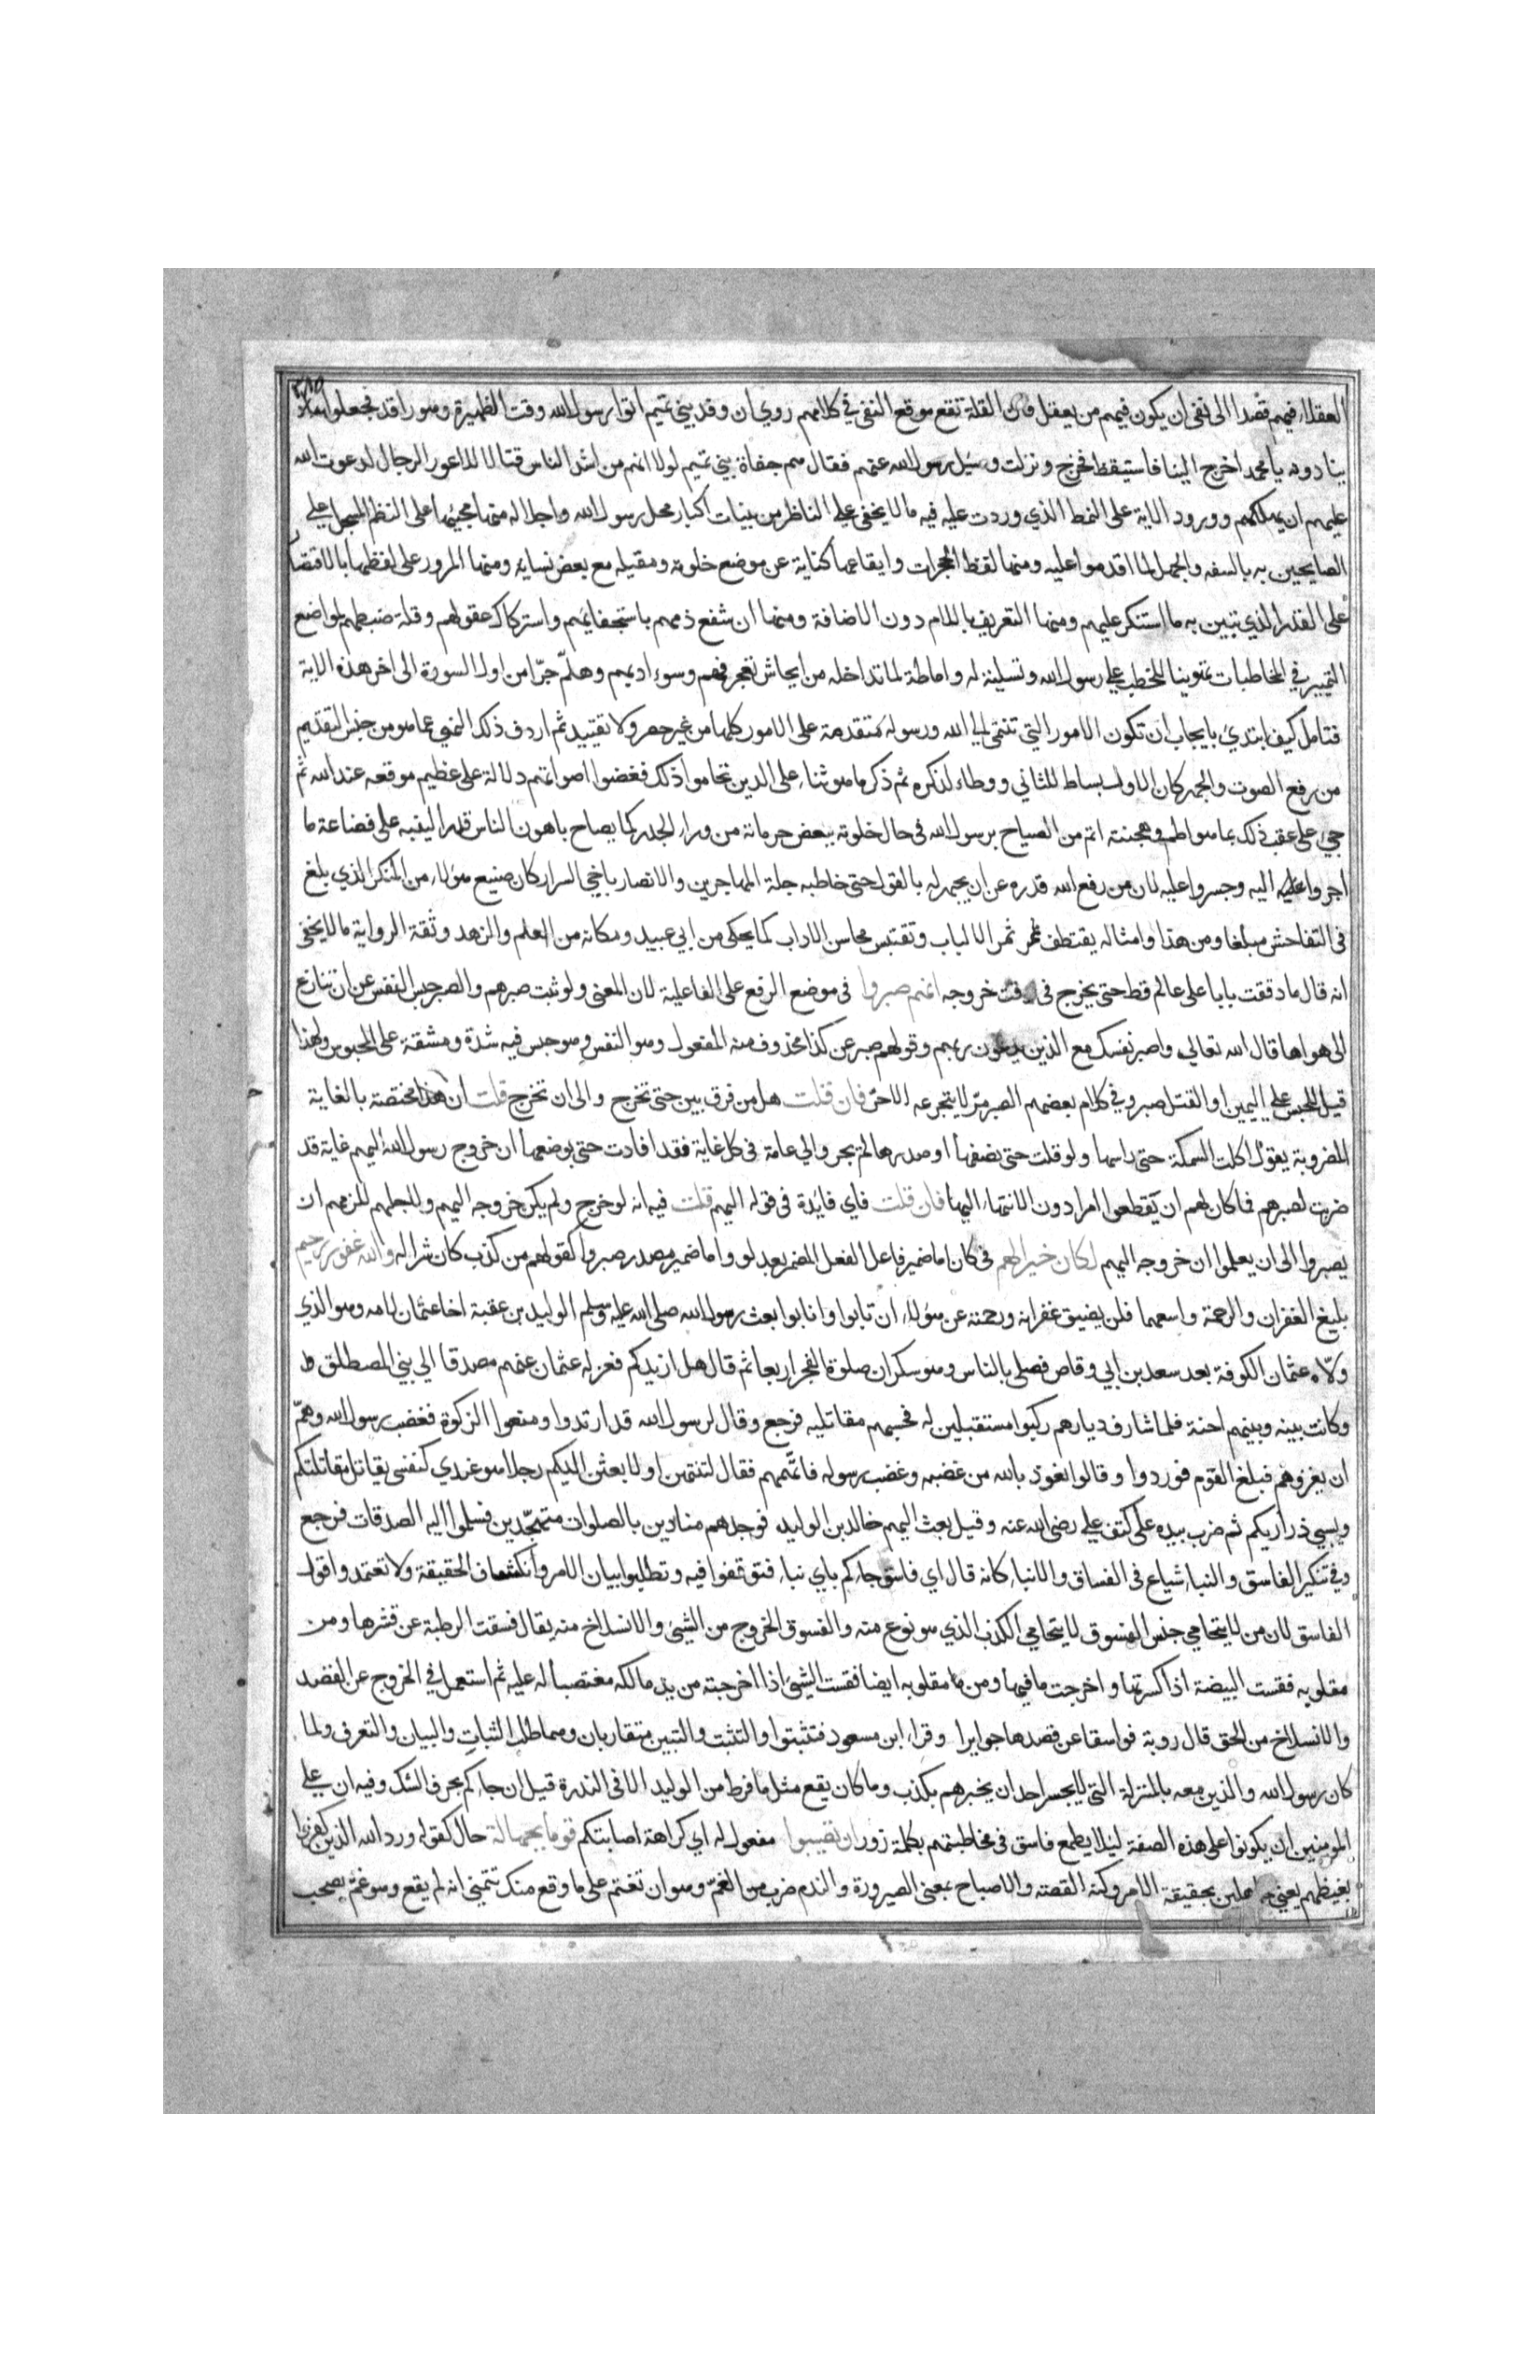 ٣٨٥
العقلاء فيهم قصدا الى نفى ان يكون فيهم من يعقل فان القلة تقع موقع النفى في كلامهم روي ان وفد بني تميم اتوا رسول الله وقت الظهيرة وهو راقد فجعلوا
ينادونه يا محمد اخرج الينا فاستيقظ فخرج ونزلت وسئل رسول الله عنهم فقال هم جفاة بني تميم لولا انهم من اشد الناس قتالا للاعور الرجال لدعوت الله
عليهم ان يهلكهم وورود الاية على النمط الذي وردت عليه فيه ما لا يخفى على الناظر من بينات اكبار محل رسول الله واجلاله منها مجيئها على النظم المسجل على
الصايحين به بالسفه والجهل لما اقدموا عليه ومنها لفظ الحجرات وايقاعها كناية عن موضع خلوته ومقيله مع بعض نسايه ومنها المرور على لفظها بالاقتصار
على القدر الذي تبين به ما استنكر عليهم ومنها التعريف باللام دون الاضافة ومنها ان شفع ذمهم باستجفائهم واستركاك عقولهم وقلة ضبطهم لمواضع
التمييز في المخاطبات تهوينا للخطب على رسول الله وتسلية له واماطة لما تداخله من ايحاش تعجرفهم وسوء ادبهم وهلم جرّا من اول السورة الى اخر هذه الاية
فتامل كيف ابتدئ بايجاب ان تكون الامور التي تنتمى الي الله ورسوله متقدمة على الامور كلها من غير حصر ولا تقييد ثم اردف ذلك النهي عما هو من جنس التقديم
من رفع الصوت والجهر كان الاول بساط للثاني ووطاء لذكره ثم ذكر ما هو ثناء على الدين تحاموا ذلك فغضوا اصواتهم دلالة على عظيم موقعه عند الله ثم
جيء على عقب ذلك بما هو اطم وهجنته اتم من الصياح برسول الله فى حال خلوته ببعض حرماته من وراء الجدر كما يصاح باهون الناس قدرا لينبه على فضاعة ما
اجروا اليه وجسروا عليه لان من رفع الله قدره عن ان يجهر له بالقول حتى خاطبه جلة المهاجرين والانصار باخي السرار كان صنيع هؤلاء من المنكر الذي بلغ
فى التفاحش مبلغا ومن هذا وامثاله يقتطف ثمر الالباب وتقتبس محاسن الاداب كما يحكى من ابي عبيد ومكانه من العلم والزهد وثقة الرواية ما لا يخفى
انه قال ما دققت بابا على عالم قط حتى يخرج فى وقت خروجه انهم صبروا فى موضع الرفع على الفاعلية لان المعنى ولو ثبت صبرهم والصبر حبس النفس عن ان تنازع
الى هواها قال الله تعالي واصبر نفسك مع الذين يدعون ربهم وقولهم صبر عن كذا محذوف منه المفعول وهو النفس وهو حبس فيه شدة ومشقة على المحبوس ولهذا
قيل للحبس على اليمين او القتل صبر وفي كلام بعضهم الصبر مرّ لا يتجرعه الا حرّ فان قلت هل من فرق بين حتى تخرج والى ان تخرج قلت ان هذا مختصة بالغاية
المضروبة يقول اكلت السمكة حتى راسها ولو قلت حتى نصفها او صدرها لم يجز والي عامة فى كل غاية فقد افادت حتى بوضعها ان خروج رسول الله اليهم غاية قد
ضربت لصبرهم فما كان لهم ان يقطعوا امرا دون الانتهاء اليها فان قلت فاي فايدة فى قوله اليهم قلت فيه انه لو خرج ولم يكن خروجه اليهم ولاجلهم للزمهم ان
يصبروا الى ان يعلموا ان خروجه اليهم لكان خيرا لهم فى كان اما ضمير فاعل الفعل المضمر بعد لو واما ضمير مصدر صبروا كقولهم من كذب كان شرا له والله غفور رحيم
بليغ الغفران والرحمة واسعهما فلن يضيق غفرانه ورحمته عن هؤلاء ان تابوا وانابوا بعث رسول الله صلى الله عليه وسلم الوليد بن عقبة اخا عثمان لامه وهو الذي
ولاّه عثمان الكوفة بعد سعد بن ابي وقاص فصلى بالناس وهو سكران صلوة الفجر اربعا ثم قال هل ازيدكم فعزله عثمان عنهم مصدقا الي بني المصطلق
وكانت بينه وبينهم احنة فلما شارف ديارهم ركبوا مستقبلين له فحسبهم مقاتليه فرجع وقال لرسول الله قد ارتدوا ومنعوا الزكوة فغضب رسول الله وهمّ
ان يغزوهم فبلغ القوم فوردوا وقالوا نعوذ بالله من غضبه وغضب رسوله فاتّهمهم فقال لتنتهن او لابعثن اليكم رجلا هو عندي كنفسى يقاتل مقاتلتكم
ويسبي ذراريكم ثم ضرب بيده على كتف علي رضى الله عنه وقيل بعث اليهم خالد بن الوليد فوجدهم منادين بالصلوات متهجّدين فسلموا اليه الصدقات فرجع
وفي تنكير الفاسق والنبا شياع فى الفساق والانباء كانه قال اي فاسق جاءكم باي نبا فتوقفوا فيه وتطلبوا بيان الامر وانكشاف الحقيقة ولا تعتمدوا قول
الفاسق لان من لا يتحامي جنس الفسوق لا يتحامي الكذب الذي هو نوع منه والفسوق الخروج من الشيئ والانسلاخ منه يقال فسقت الرطبة عن قشرها ومن
مقلوبه فقست البيضة اذا كسرتها واخرجت ما فيها ومن مقلوبه ايضا فقست الشيئ اذا اخرجته من يد مالكه مغتصبا له عليه ثم استعمل في الخروج عن القصد
والانسلاخ من الحق قال روبة فواسقا عن قصدها جوايرا وقراء ابن مسعود فتثبتوا والتثبت والتبين متقاربان وهما طلب الثبات والبيان والتعرف ولما
كان رسول الله والذين معه بالمنزلة التى لا يجسر احد ان يخبرهم بكذب وما كان يقع مثل ما فرط من الوليد الا فى الندرة قيل ان جاءكم بحرف الشك وفيه ان على
المومنين ان يكونوا على هذه الصفة ليلا يطمع فاسق فى مخاطبتهم بكلمة زور ان تصيبوا مفعول له اي كراهة اصابتكم قوما بجهالة حال كقوله ورد الله الذين كفروا
بغيظهم يعني جاهلين بحقيقة الامر وكنه القصته والاصباح بمعنى الصيرورة والندم ضرب من الغمّ وهو ان تغتم على ما وقع منك تتمنى انه لم يقع وهو غمّ يصحب